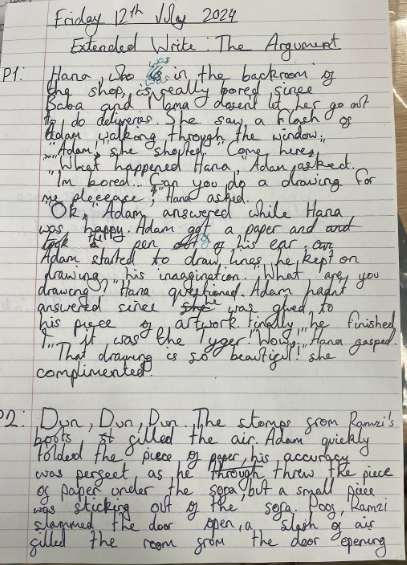 Friday 12th July 2024
Extended Write: The Argument
P1: Hana, who was in the backroom of
the shop, is really bored since
Baba and Mama dosent let her go out
to do deliveras. She saw a flash of
Adam walking through the window,
"Adam", she shouted, "Come here,
"What happened Hana," Adam asked.
I'm bored... Can you do a drawing for
me pleeease, Hana asked.
"Ok," Adam answered while Hana
was happy. Adam got a paper and and
took a pen out of his ear,
Adam started to draw lines, he kept on
drawing his imagination. "What are you
drawing?" Hana questioned. Adam hadnt
answered since she he was glued to
his piece of artwork. Finally he finished
it, it was the Tyger! "Wow," Hana gasped.
"That drawing is so beautiful!" she
complimented.
P2: Dun, Dun, Dun. The stomps from Ramzi's
boots filled the air. Adam quickly
folded the piece of paper, his accuracy
was perfect as he through threw the piece
of paper under the sofa, but a small piece
was sticking out of the sofa. Ramzi
slammed the door open, a slash of air
filled the room from the door opening